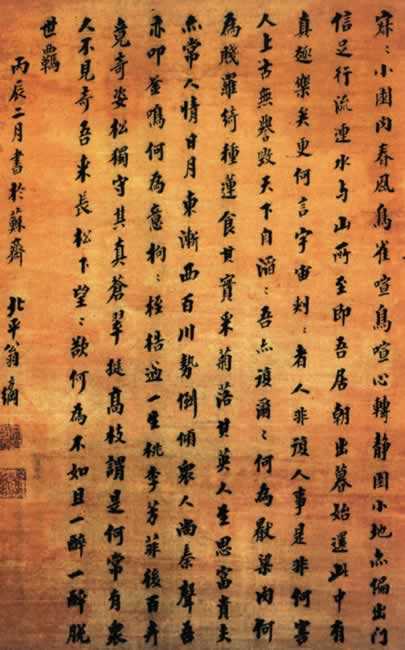 寂〻小園內春風鳥雀喧鳥喧心轉靜園小地亦偏出門
信足行流連水与山所至即吾居朝出暮始還此中有
真趣樂矣更何言宇宙刬〻者人非復人事是非何害
人上古無譽毀天下自滔〻吾亦復爾〻何為厭粱肉何
為賤羅綺種蓮食其實采菊落其英人生思富貴夫
亦常人情日月東漸西百川勢倒傾衆人尚秦聲吾
亦叩釜鳴何為意拘〻桎梏迫一生桃李芳菲後百卉
競奇姿松獨守其真蒼翠挺高枝謂是何常有衆
人不見奇吾来長松下望〻欲何為不如且一醉一醉脫
世羈
丙辰二月書於蘇齋 北平翁方綱